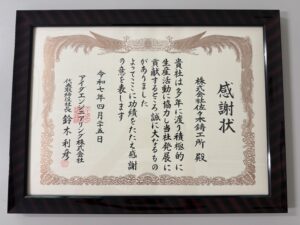 感謝状
株式会社佐々木鋳工所 殿
貴社は多年に渡り積極的に
生産活動に協力し当社発展に
貢献するところ誠に大なるもの
がありました
よってここに功績をたたえ感謝
の意を表します
令和七年四月二十五日
アイダエンジニアリング株式会社
代表取締役社長 鈴木利彦